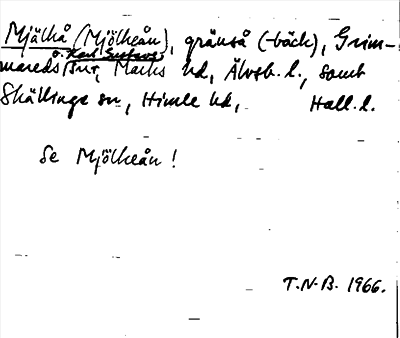 Mjälkå (Mjölkeån), gränså (-bäck), Grim-
o. Karl Gustavs
mareds snr, Marks hd, Älvsb. l., samt
Skällinge sn, Himle hd, Hall. l.
Se Mjölkeån!
T.N-B. 1966.